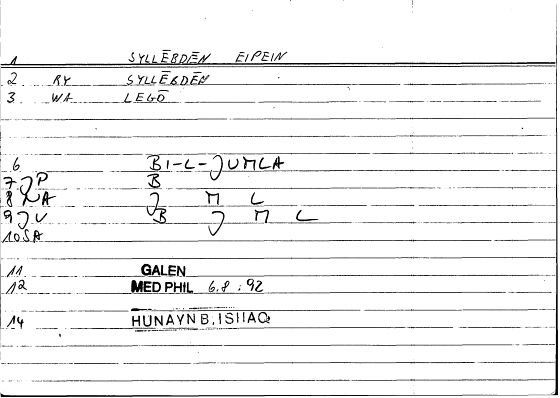 1 SYLLĒBDĒN EIPEIN
2 RY SYLLĒBDĒN
3 WA LEGŌ
6 BI-L-JUMLA
7 JP B
8 NA J M L
9 JV B J M L
10 SA
11 GALEN
12 MED PHIL 6.8 : 92
14 HUNAYN B, ISHAQ